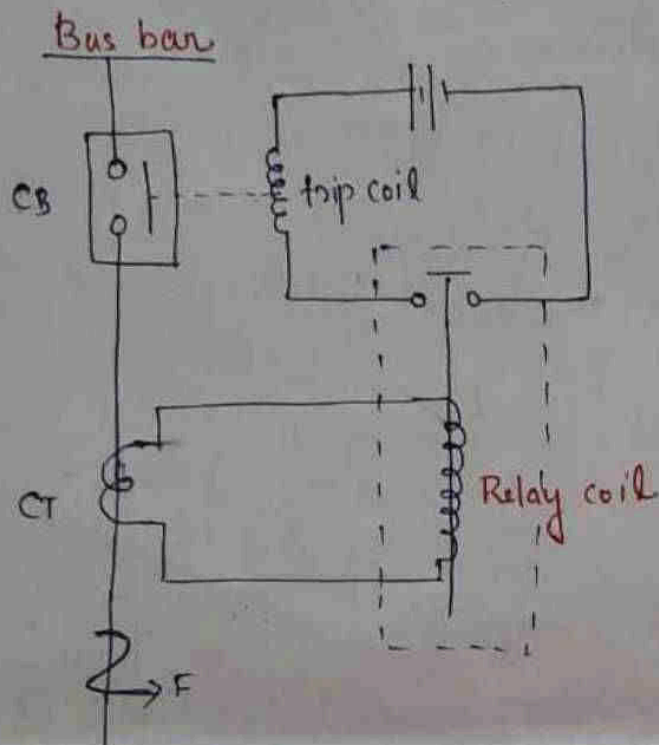 Bus bar
CB
trip coil
CT
Relay coil
F